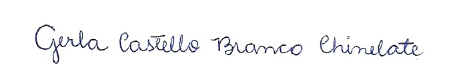 Gerla Castello Branco Chinelate